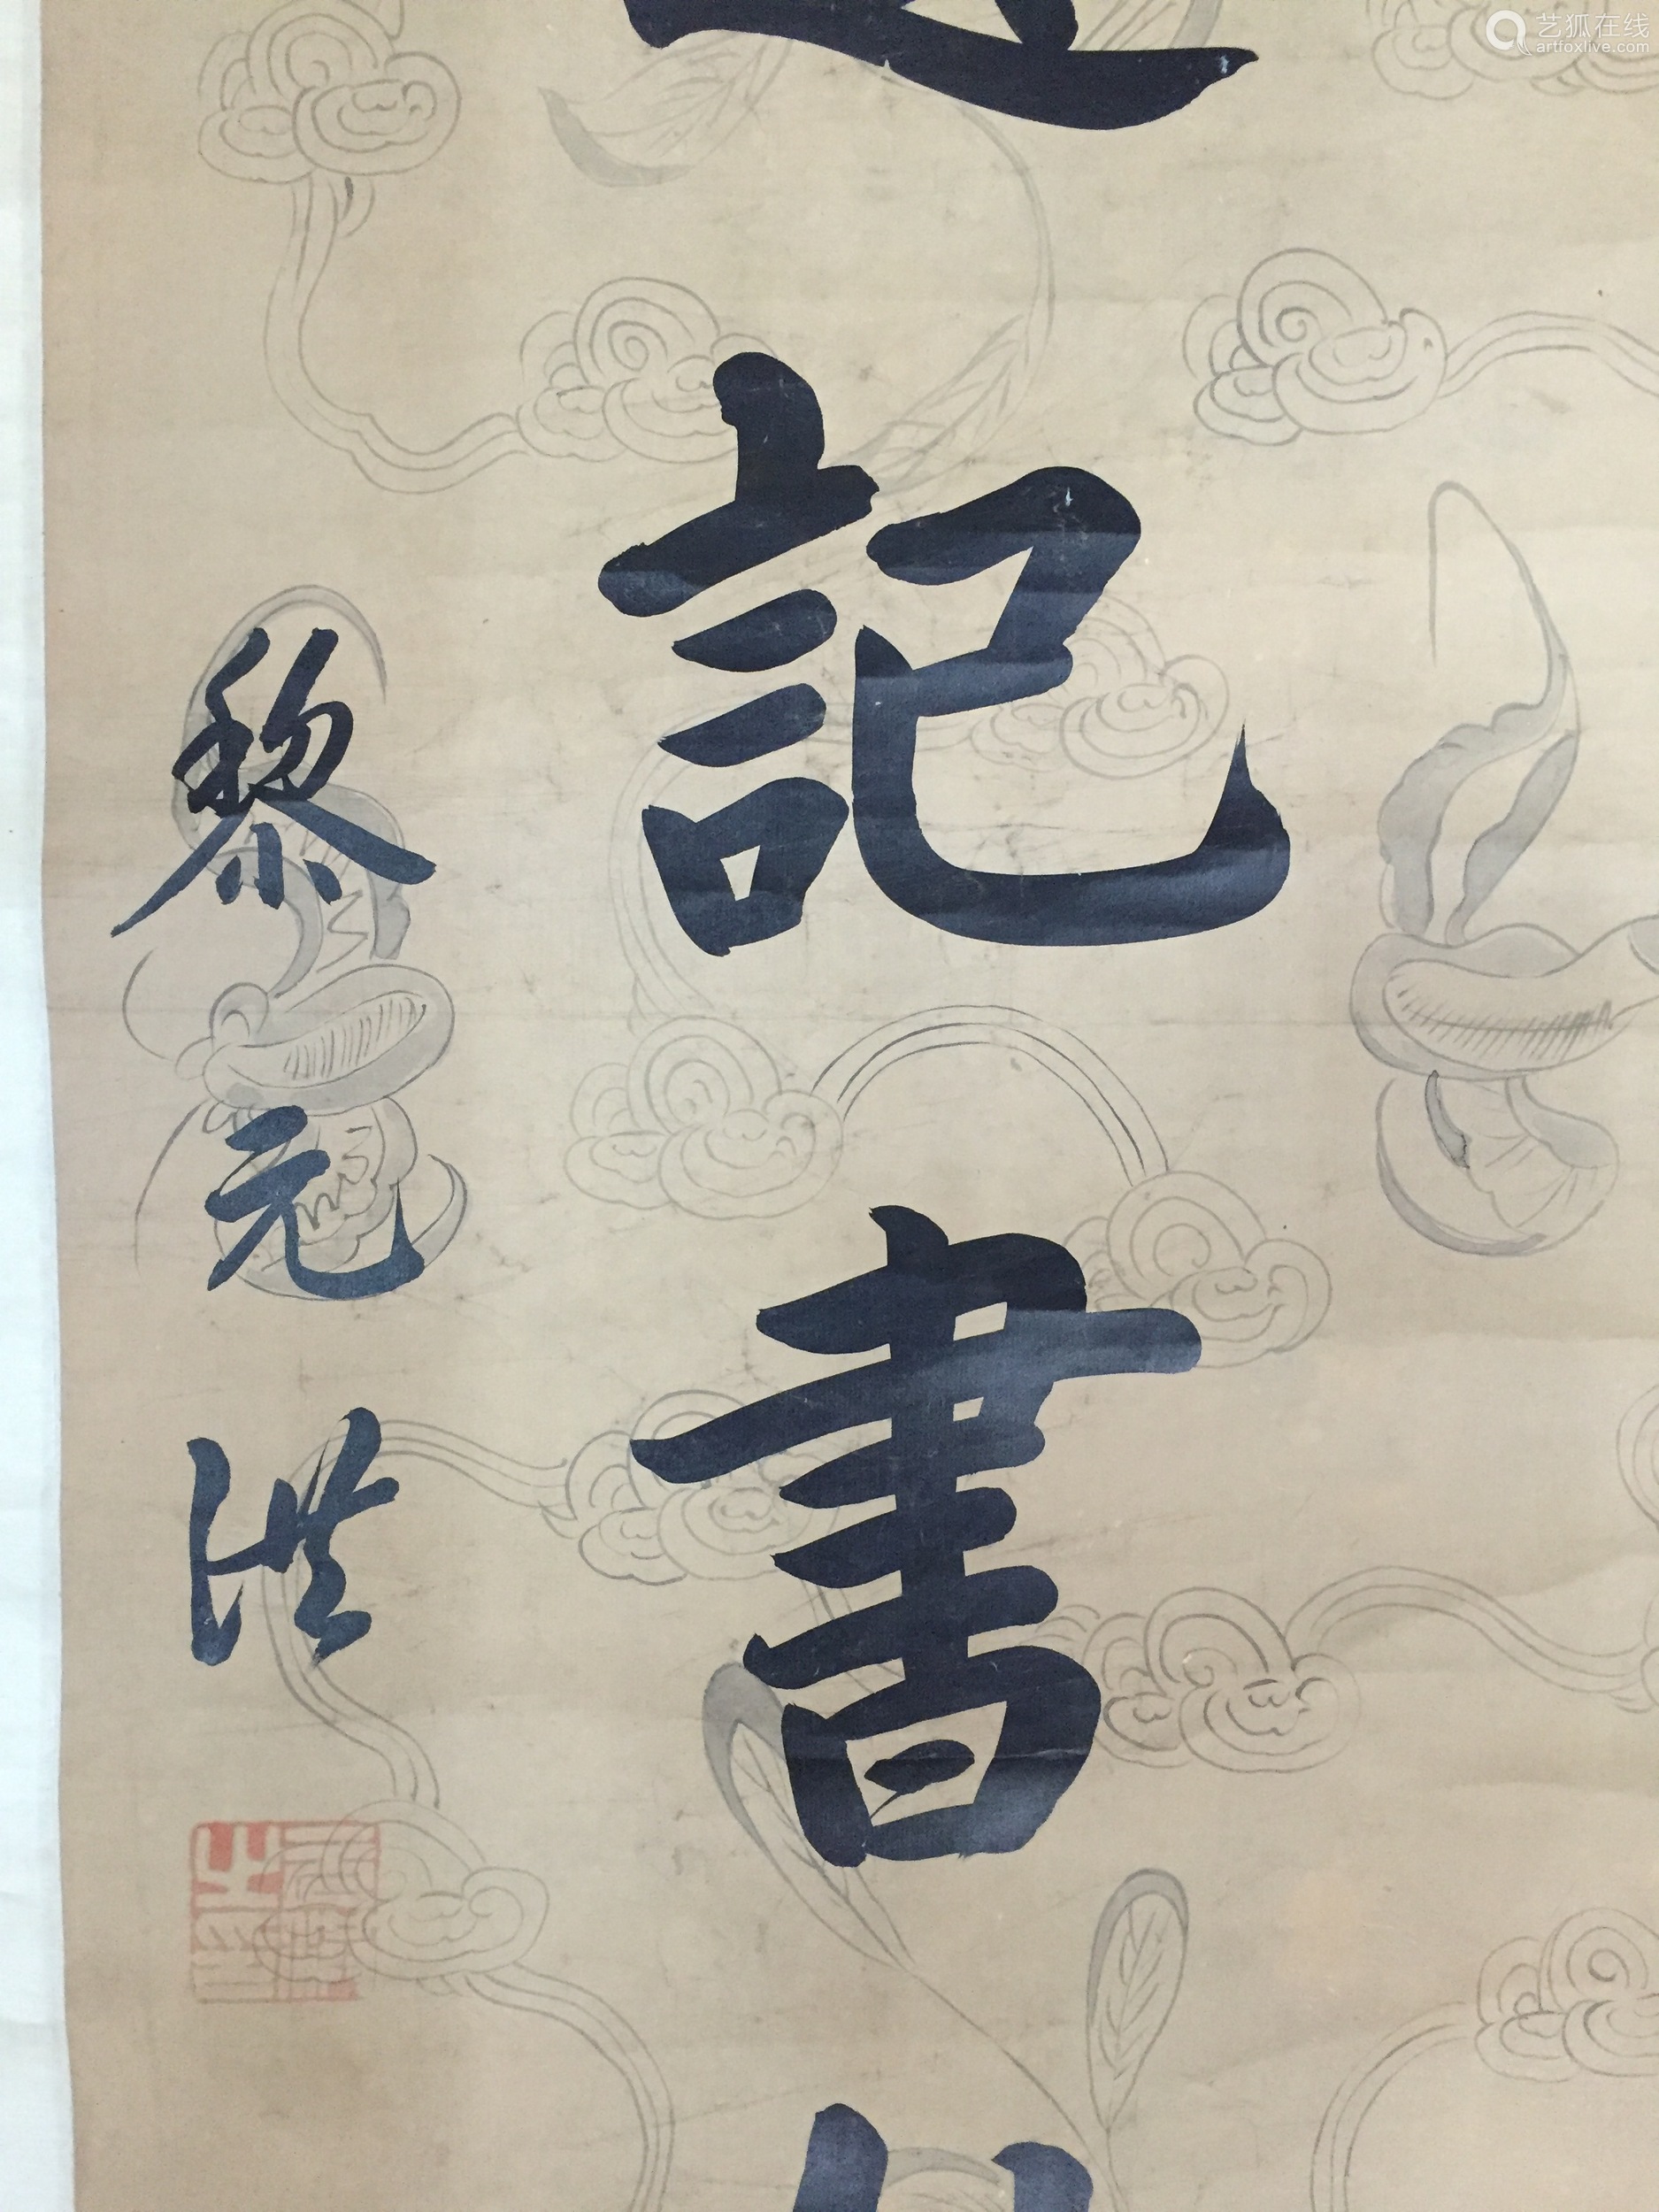 記書
黎元洪
艺狐在线
artfoxlive.com